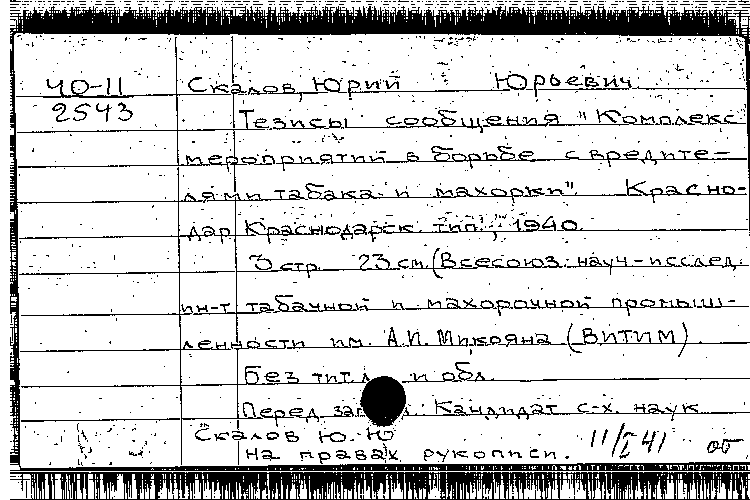 40-11 Скалов, Юрий Юрьевич
2543
Тезисы сообщения "Комплекс
мероприятий в борьбе с вредите-
лями табака и махорки". Красно-
дар Краснодарск. тип., 1940.
3 стр. 23 см. (Всесоюз. науч-исслед.
ин-т табачной и махорочной промыш-
ленности им. А.И. Микояна (ВИТИМ).
Без тит. л. и обл.
Перед Кандидат с-х. наук
Скалов Ю.Ю
На правах рукописи. 11/I 41 об